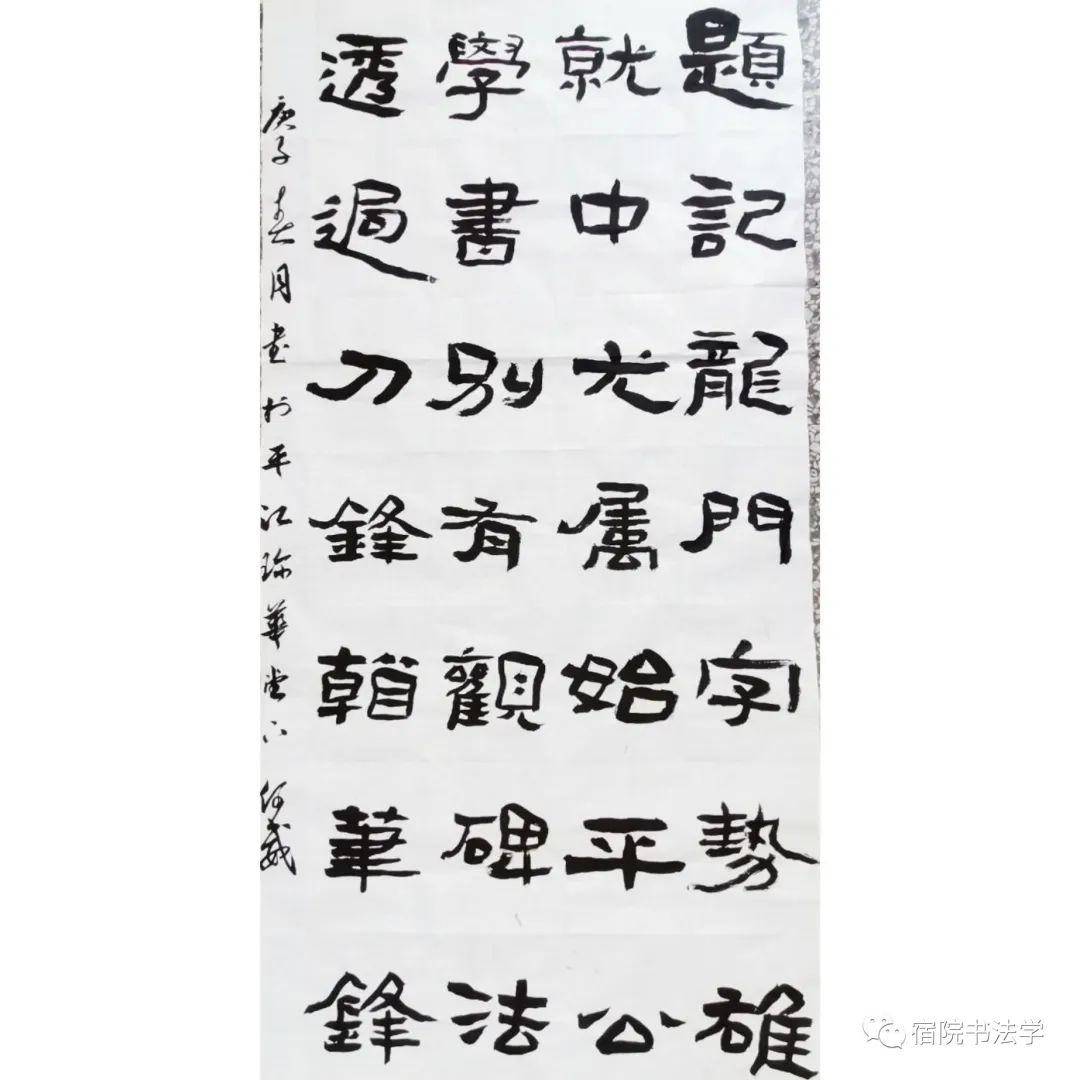 題記龍門字勢雄
就中尤属始平公
學書別有觀碑法
透過刀鋒賭筆鋒
庚子春月書於平江琭華堂下 何威
宿院书法学